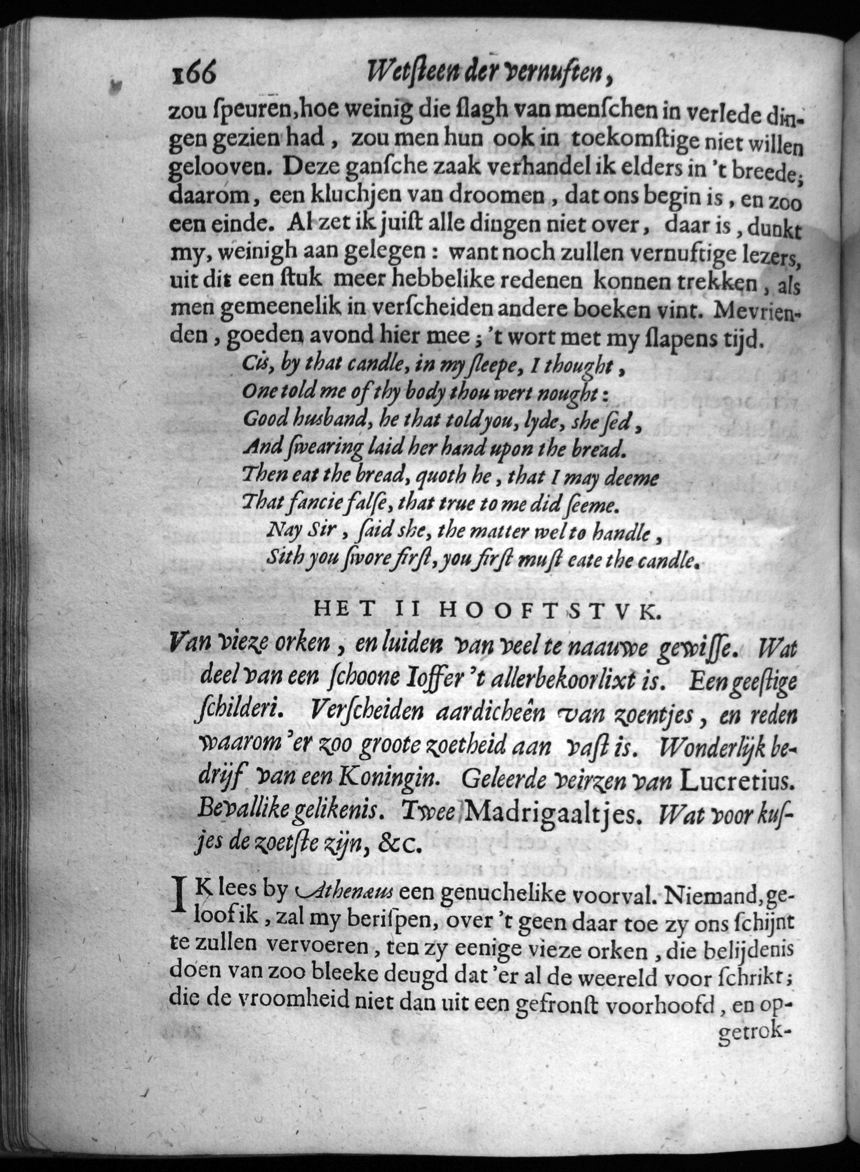 166 Wetſteen der vernuften,
zou ſpeuren, hoe weinig die ſlagh van menſchen in verlede din-
gen gezien had, zou men hun ook in toekomſtige niet willen
gelooven. Deze ganſche zaak verhandel ik elders in 't breede;
daarom, een kluchjen van droomen, dat ons begin is, en zoo
een einde. Al zet ik juiſt alle dingen niet over, daar is, dunkt
my, weinigh aan gelegen: want noch zullen vernuftige lezers,
uit dit een ſtuk meer hebbelike redenen konnen trekken, als
men gemeenelik in verſcheiden andere boeken vint. Mevrien-
den, goeden avond hier mee; 't wort met my ſlapens tijd.
Cis, by that candle, in my ſleepe, I thought,
One told me of thy body thou wert nought:
Good husband, he that told you, lyde, she ſed,
And ſwearing laid her hand upon the bread.
Then eat the bread, quoth he, that I may deeme
That fancie falſe, that true to me did ſeeme.
Nay Sir, ſaid she, the matter wel to handle,
Sith you ſwore firſt, you firſt muſt eate the candle.
HET II HOOFTSTVK.
Van vieze orken, en luiden van veel te naauwe gewiſſe. Wat
deel van een ſchoone Ioffer 't allerbekoorlixt is. Een geeſtige
ſchilderi. Verſcheiden aardicheên van zoentjes, en reden
waarom 'er zoo groote zoetheid aan vaſt is. Wonderlijk be-
drijf van een Koningin. Geleerde veirzen van Lucretius.
Bevallike gelikenis. Twee Madrigaaltjes. Wat voor kuſ-
jes de zoetſte zijn, &c.
IK lees by Athenæus een genuchelike voorval. Niemand, ge-
loof ik, zal my beriſpen, over 't geen daar toe zy ons ſchijnt
te zullen vervoeren, ten zy eenige vieze orken, die belijdenis
doen van zoo bleeke deugd dat 'er al de weereld voor ſchrikt;
die de vroomheid niet dan uit een gefronſt voorhoofd, en op-
getrok-